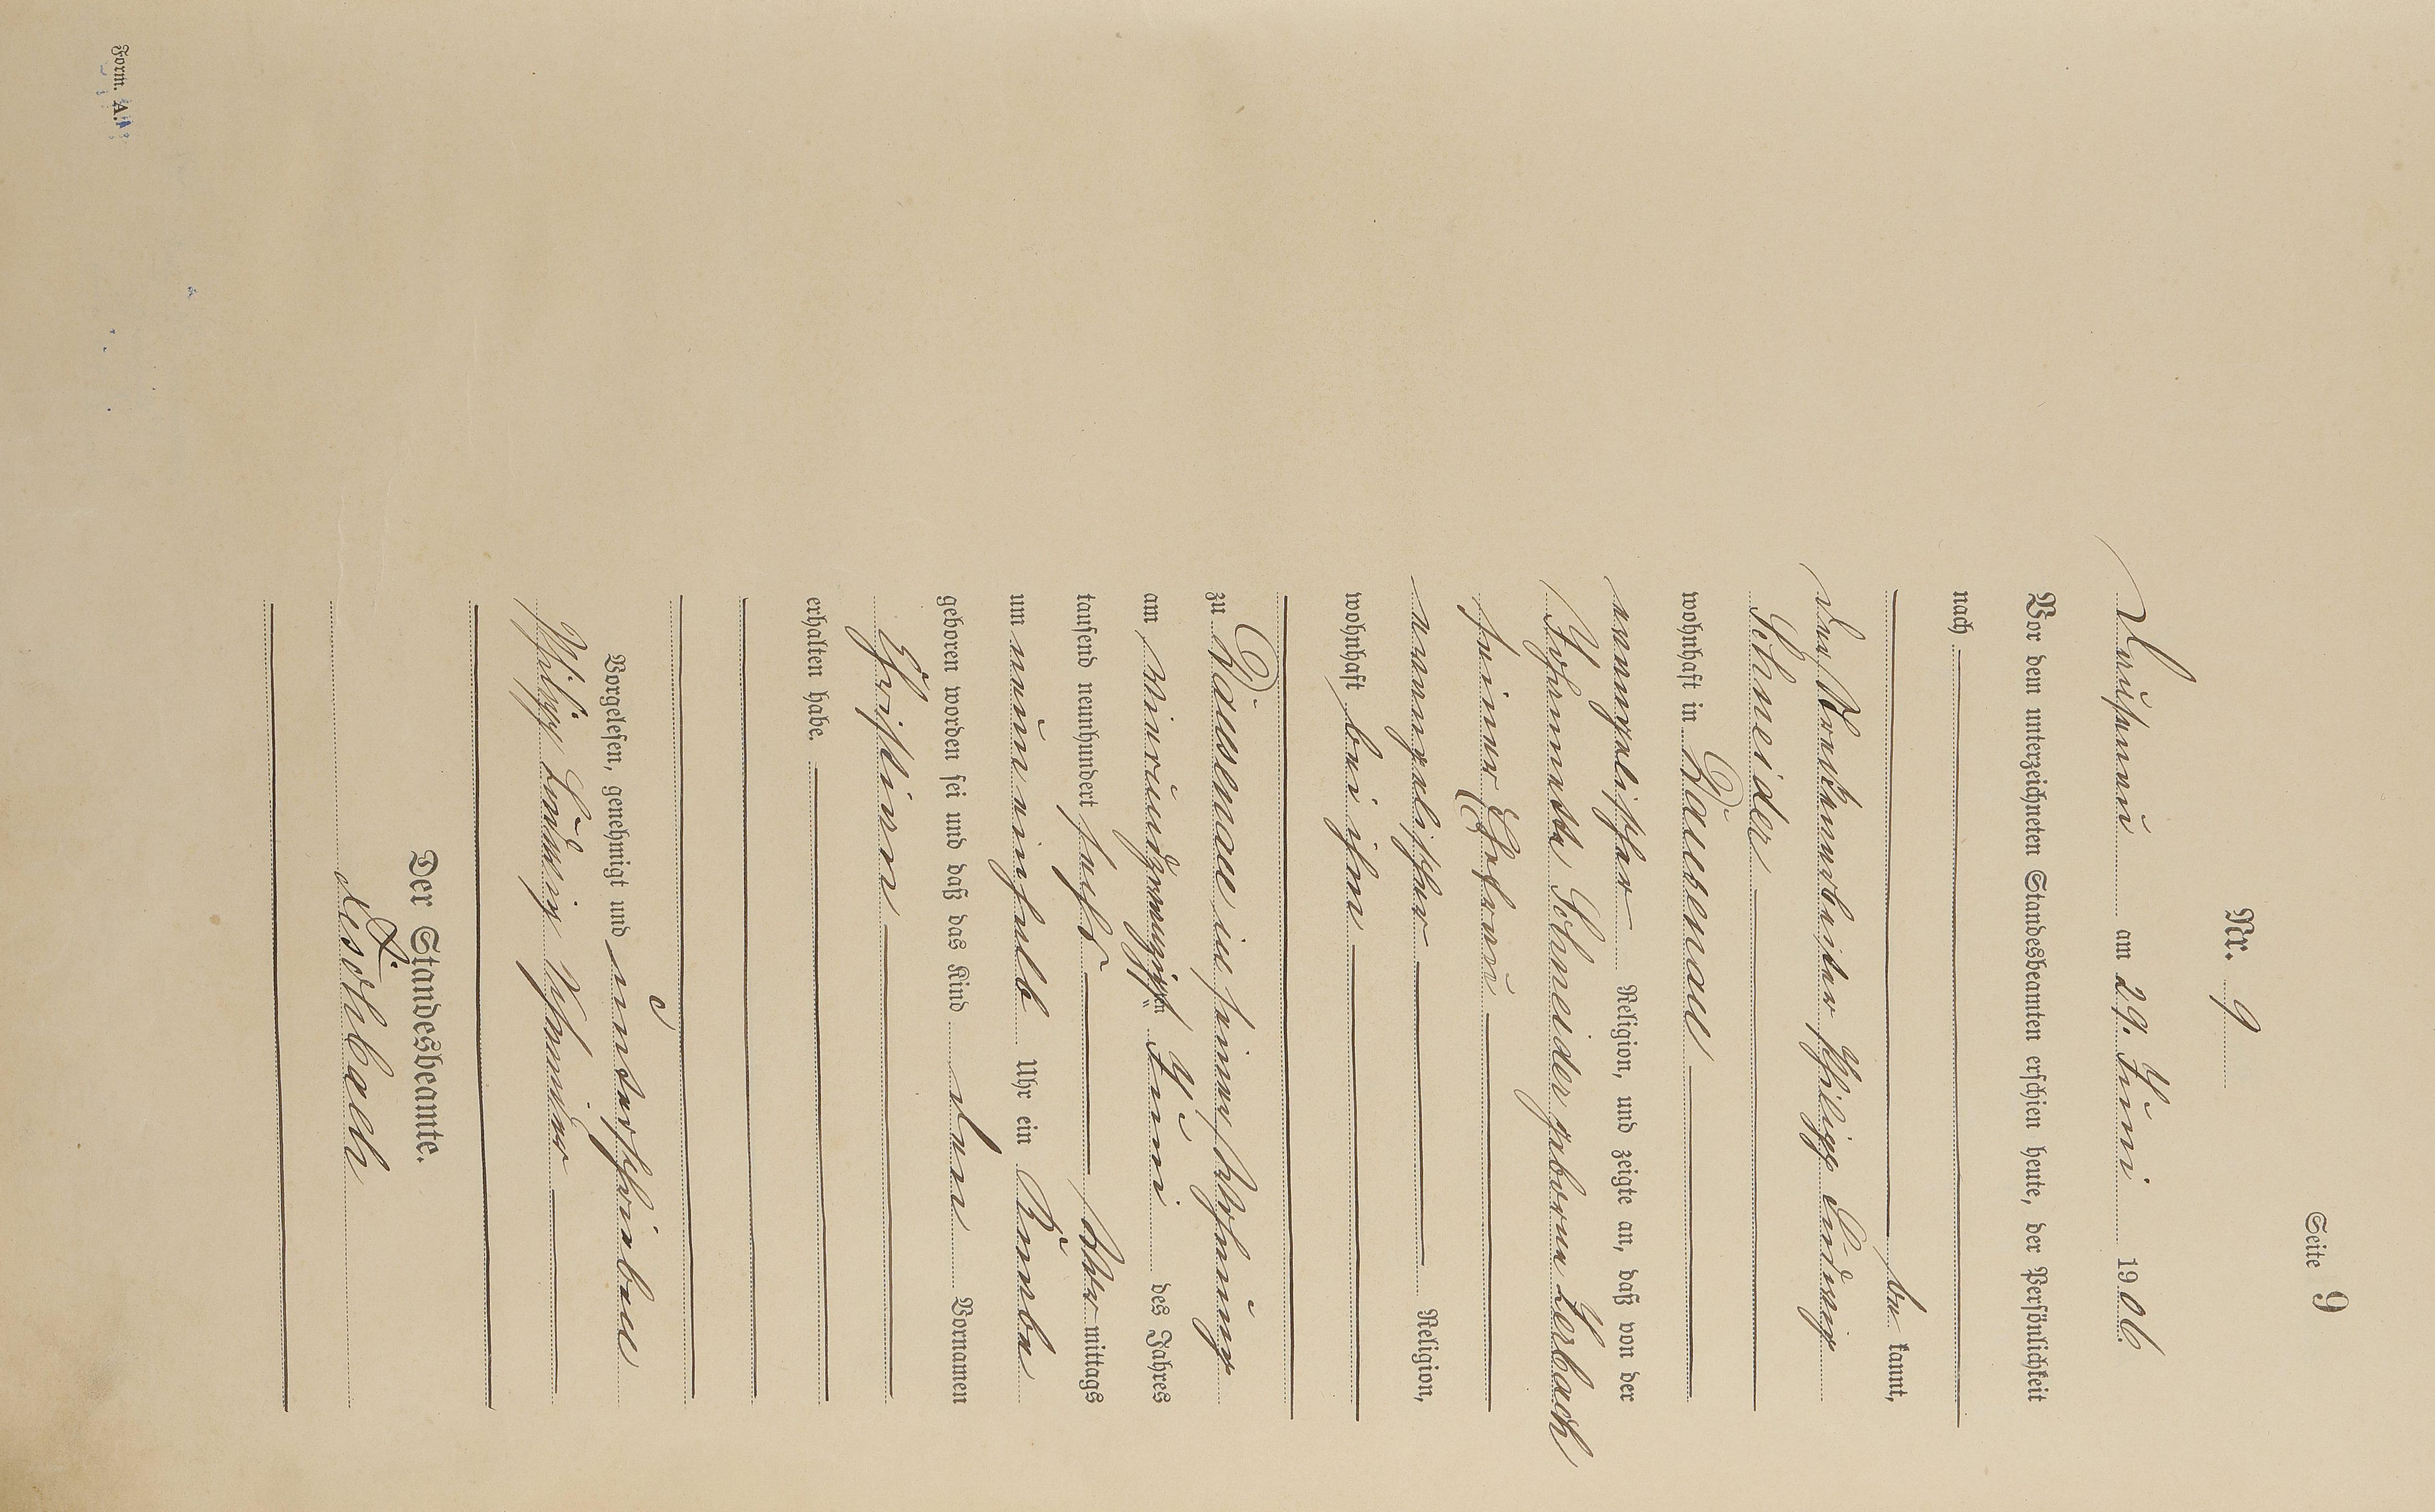 Seite 9
Nr. 9
Dausenau am 29. Juni 1906.
Vor dem unterzeichneten Standesbeamten erschien heute, der Persönlichkeit
nach
be kannt,
der Philipp Ludwig
Schneider
wohnhaft in Dausenau
evangelischer Religion, und zeigte an, daß von der
Johannette Schneider geborne Zerbach
seiner Ehefrau
evangelischer Religion,
wohnhaft bei ihm
zu Dausenau in seiner Wohnung
am vierundzwanzigsten Juni des Jahres
tausend neunhundert sechs mittags
um neun einhalb Uhr ein Knabe
geboren worden sei und daß das Kind den Vornamen
Christian
erhalten habe.
Vorgelesen, genehmigt und unterschrieben
Philipp Ludwig Schneider
Der Standesbeamte.
Form. A.